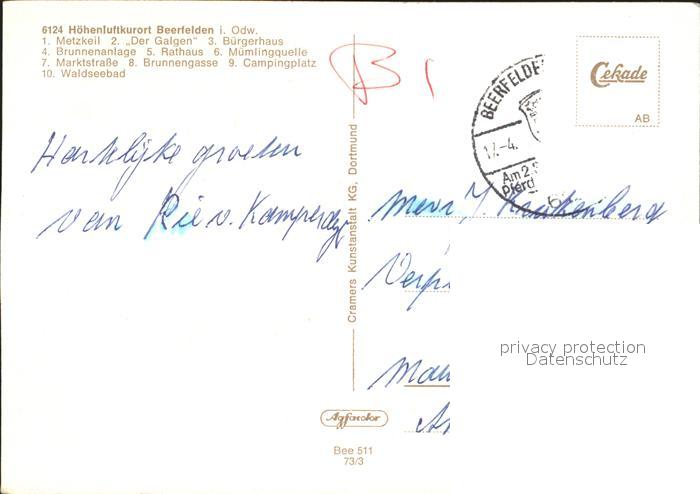 6124 Höhenluftkurort Beerfelden i. Odw.
1. Metzkeil 2. „Der Galgen" 3. Bürgerhaus
4. Brunnenanlage 5. Rathaus 6. Mümlingquelle
7. Marktstraße 8. Brunnengasse 9. Campingplatz
10. Waldseebad
B 1
BEERFELDE
17.-4.
Am 2.
Pferd
6
Cekade
AB
Hartelijke groeten
van Rie v.
Cramers Kunstanstalt KG, Dortmund
Mevr
privacy protection
Datenschutz
Agfacolor
Bee 511
73/3